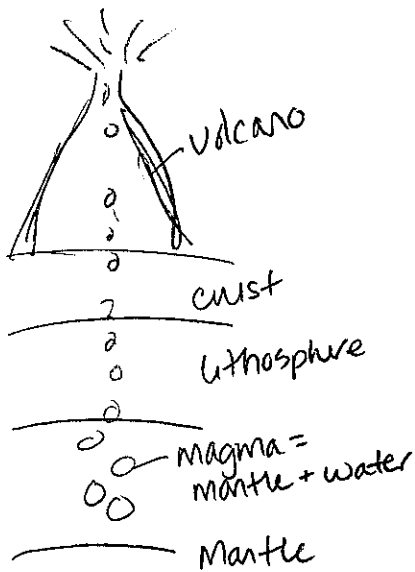 volcano
crust
lithosphere
magma =
mantle + water
Mantle